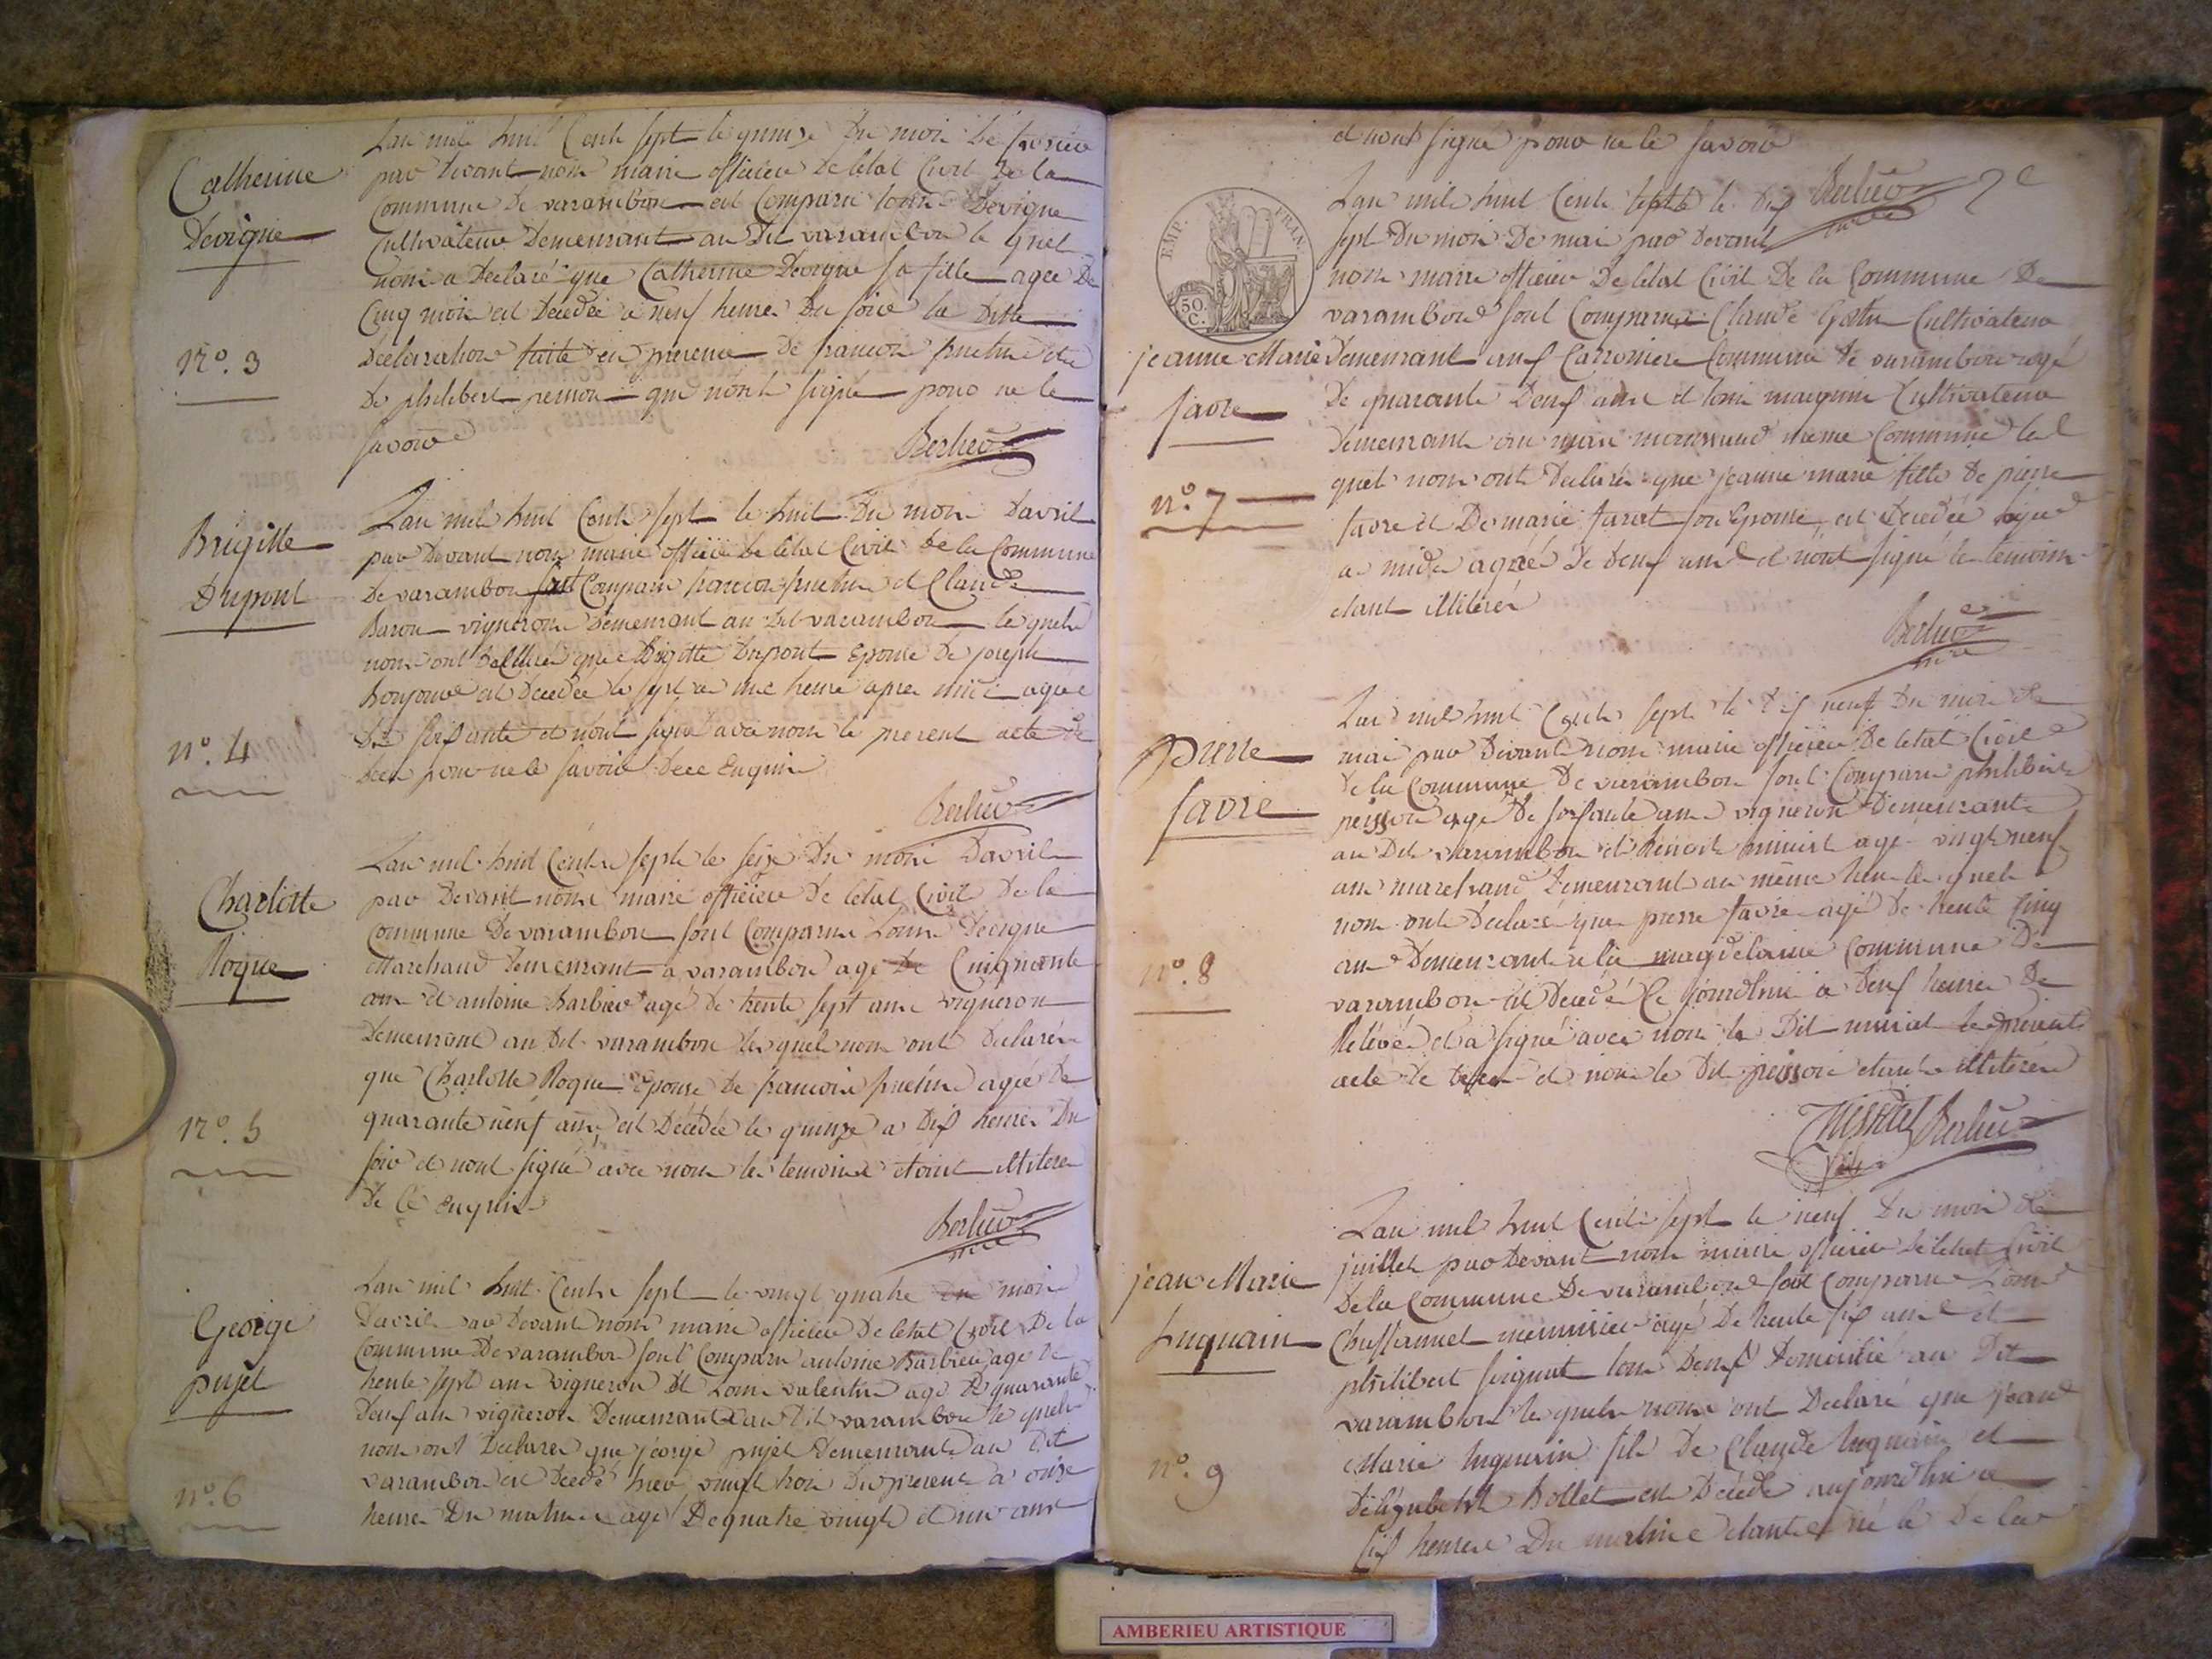 Catherine
Devigne
N.º 3
Lan mil huit Cents sept le quinze Du mois de
par devant nous maire officier De letat Civil De la
Commune De varambon est Comparu louis Devigne
Cultivateur Demeurant au Dit varambon le quel
nous a Declaré que Catherine Devigne sa fille agée De
Cinq mois est Decedée a neuf heures Du soire la Ditte
Declaration faite en presence De francois
De philibert peisson qui nont signé pour ne le
savoire
Berlier
Brigitte
Dupont
n.º 4
Lan mil huit Cents sept le huit Du mois Davril
par Devant nous maire officier De letat Civil De la Commune
De varambon sont Comparu francois et Claude
Baron vignerons Demeurant au Dit varambon lesquels
nous ont Declaré que Brigitte Dupont Epouse De joseph
est Decedée le sept a une heure apres midi agée
De soisante et nont signé avec nous le present acte de
Deces pour ne le savoir Dece Enquis
Berlier
Charlotte
Roque
N.º 5
Lan mil huit Cents sept le seize Du mois Davril
par Devant nous maire officier De letat Civil De la
Commune De varambon sont Comparus Louis Devigne
Marchand Demeurant a varambon agé De Cinquante
ans et antoine Barbier agé De trente sept ans vigneron
Demeurant au Dit varambon les quels nous ont Declarés
que Charlotte Roque Epouse De francois agée De
quarante neuf ans est Décédée le quinze a Dix heures Du
soir et nont signé avec nous les temoins etant illiteres
De Ce Enquis
Berlier
mire
George
pujet
n.º 6
Lan mil huit Cents sept le vingt quatre du mois
Davril par Devant nous maire officier De letat Civil De la
Commune De varambon sont Comparu antoine Barbier agé De
trente sept ans vigneron et Louis valentin agé De quarante
Deux ans vigneron Demeurant au Dit varambon les quels
nous ont Declarés que george pujet Demeurant au Dit
varambon est Decedé hier vingt trois Du present a onze
heures Du matin agé De quatre vingts et un ans
et nont signé pour ne le savoir
Berlier
2e
EMP. FRAN.
50 C.
jeanne Marie
favre
n.º 7
Lan mil huit Cents sept le Dix
sept Du mois De mai par Devant
nous maire officier De letat Civil De la Commune De
varambon sont Comparus Claude Cultivateur
Demeurant aux Carronieres Commune de varambon agé
De quarante Deux ans et louis Cultivateur
Demeurant au meme Commune les
quels nous ont Declarés que jeanne marie fille De pierre
favre et De marie son Epouse est Decedée
a midi agée De Deux ans et nont signé les temoins
etant illiterés
Berlier
mire
pierre
favre
n.º 8
Lan mil huit Cents sept le Dix neuf Du mois De
mai par Devant nous maire officier De letat Civil
De la Commune De varambon sont Comparu philibert
peisson agé De soisante ans vigneron Demeurant
au Dit varambon et agé vingt neuf
ans marchand Demeurant au même lieu les quels
nous ont Declaré que pierre favre agé De trente Cinq
ans Demeurant a la magdelaine Commune De
varambon est Decedé Ce jourdhui a Deux heures De
Relévée et a signé avec nous le Dit le present
acte De Deces et non le Dit peisson etant illiteré
Berlier
jean Marie
huguain
n.º 9
Lan mil huit Cents sept le neuf Du mois De
juillet par Devant nous maire officier De letat Civil
De la Commune De varambon sont Comparu Louis
menuisier agé De trente six ans et
philibert tous Deux Domicilié au Dit
varambon les quels nous ont Declaré que jean
Marie huguain fils De Claude huguain et
Bollet est Décédé aujourdhui a
six heures Du matin etant né le De la
AMBERIEU ARTISTIQUE